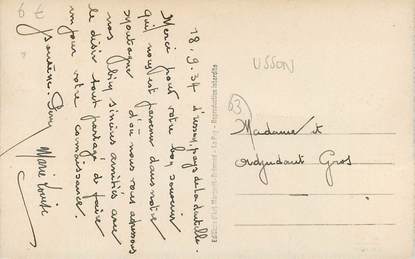 18.9.34 d'Usson, pays de la dentelle.
Merci pour votre bon souvenir
qui nous est parvenu dans notre
montagne d'où nous vous adressons
nos bien sincères amitiés avec
le désir tout partagé de faire
un jour votre connaissance
Marie Louise
Reproduction interdite
USSON
63
Madame et
adjudant Gros